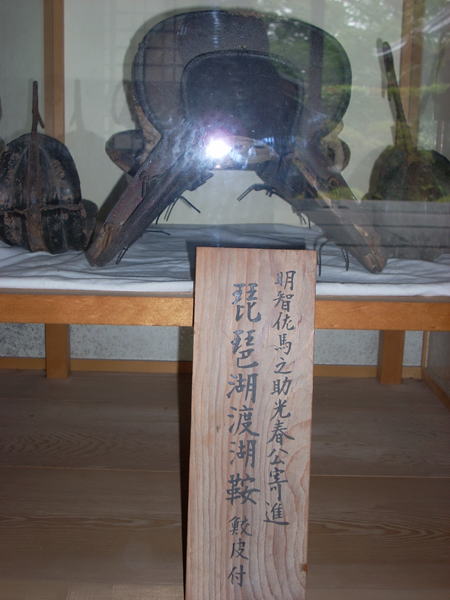 明智佐馬之助光春公寄進
琵琶湖渡湖鞍 鮫皮付